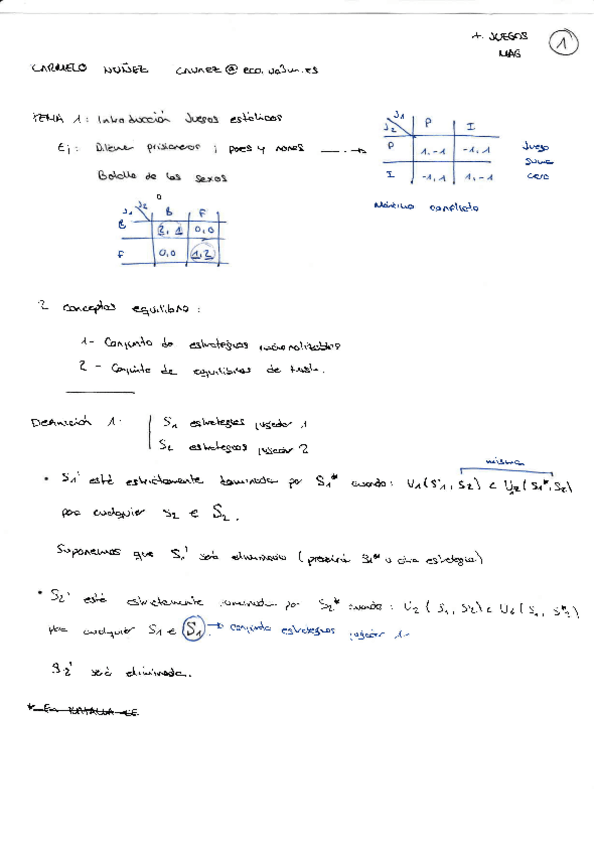 T. JUEGOS
MAG
1
CARMELO NÚÑEZ
TEMA 1: Introducción Juegos estáticos
Ej: Dilema prisioneros ; pares y nones →
Batalla de los sexos
J1
J2
P I
P 1,-1 -1,1
I -1,1 1,-1
Juego
suma
cero
Máximo conflicto
J2
J1
B F
B 2,1 0,0
F 0,0 1,2
2 conceptos equilibrio:
1- Conjunto de estrategias racionalizables
2 - Conjunto de equilibrios de Nash.
Definición 1. S1 estrategias jugador 1
S2 estrategias jugador 2
misma
• S1' está estrictamente dominada por S1* cuando: U1(S'1, S2) < U2(S1*, S2)
para cualquier s2 ∈ S2.
Suponemos que S1' será eliminada ( S1* u otra estrategia)
• S2' está estrictamente dominada por S2* cuando: U2(S1, S2') < U2(S1, S2*)
para cualquier S1 ∈ S1. → conjunto estrategias jugador 1.
S2' será eliminada.
* En BATALLA DE